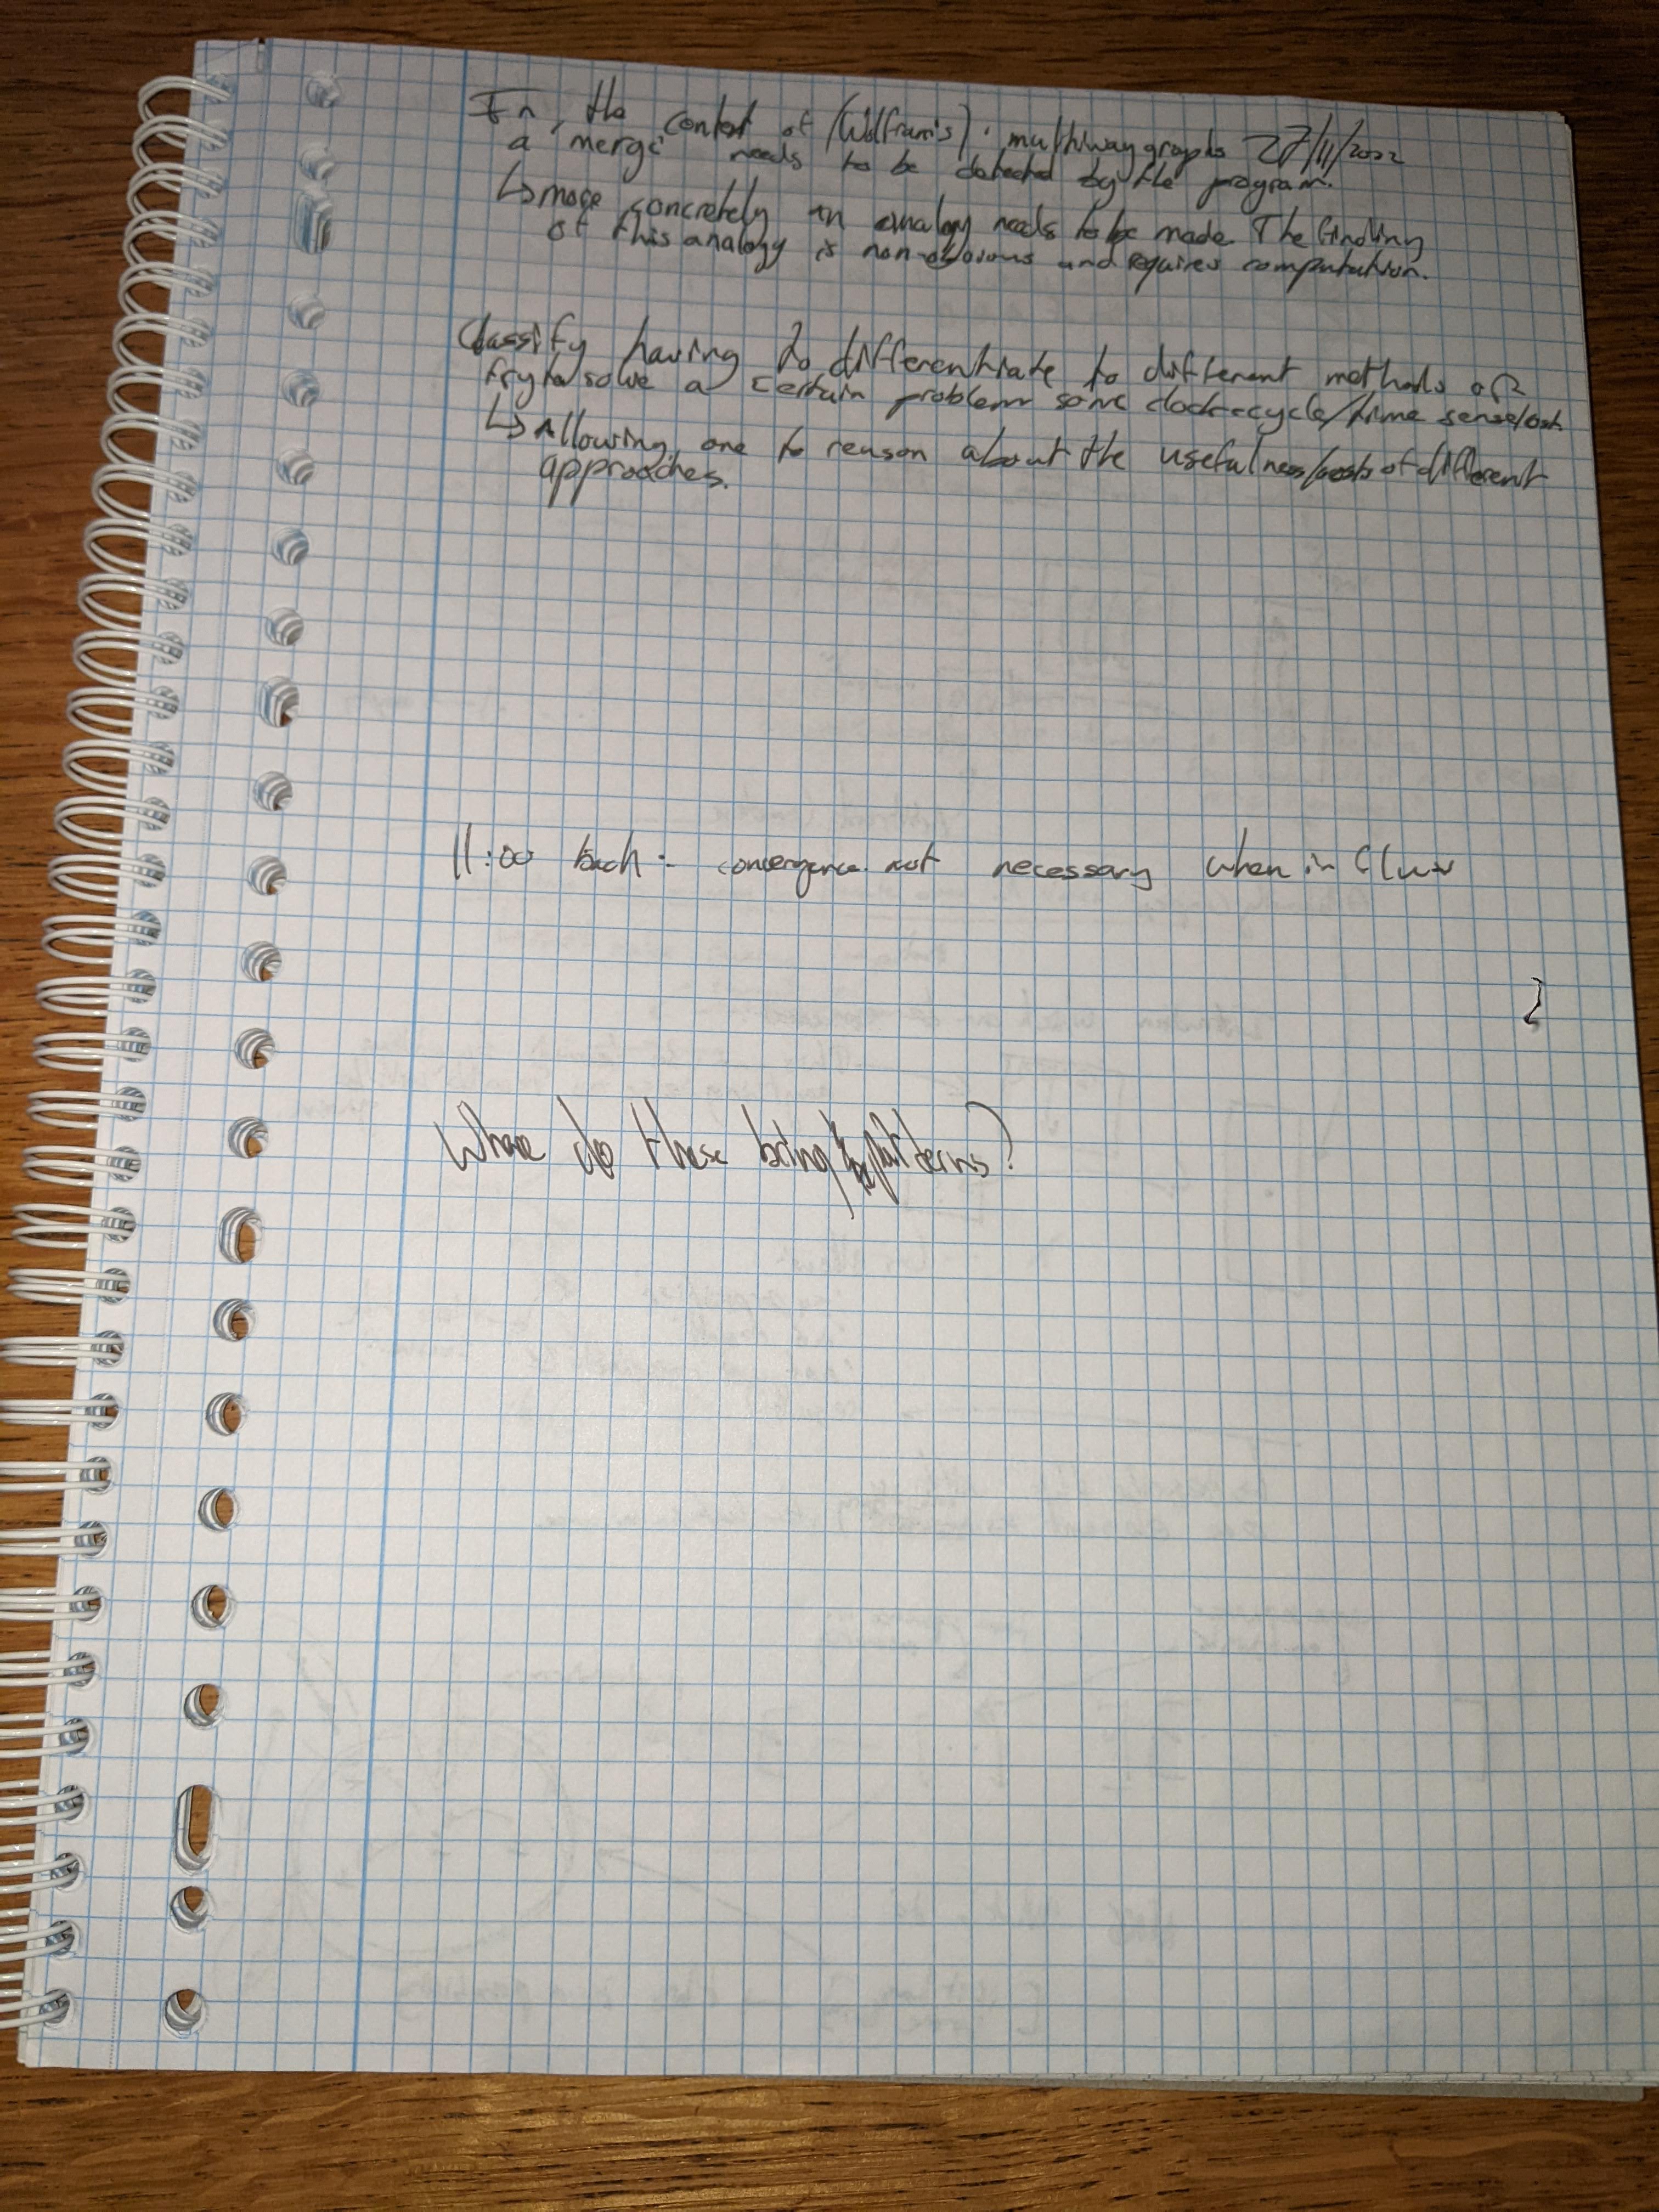 In the context of (Wolfram's) multiway graphs 27/11/2022
a 'merge' needs to be detected by the program.
↳ more concretely an analogy needs to be made. The finding
of this analogy is non-obvious and requires computation.
Classify having to differentiate to different methods of
try to solve a certain problem some clock-cycle/time sense/cost.
↳ Allowing one to reason about the usefulness/costs of different
approaches.
11:00 bach: convergence not necessary when in flux
Where do these bring patterns?